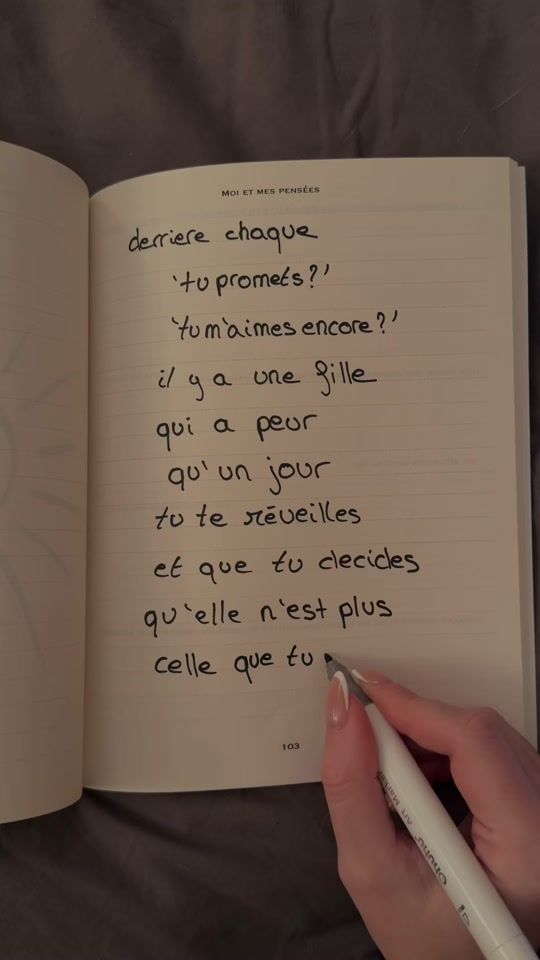 MOI ET MES PENSÉES
derriere chaque
'tu promets?'
'tu m'aimes encore?'
il y a une fille
qui a peur
qu'un jour
tu te réveilles
et que tu decides
qu'elle n'est plus
celle que tu
103
Ohuhu Art Marker